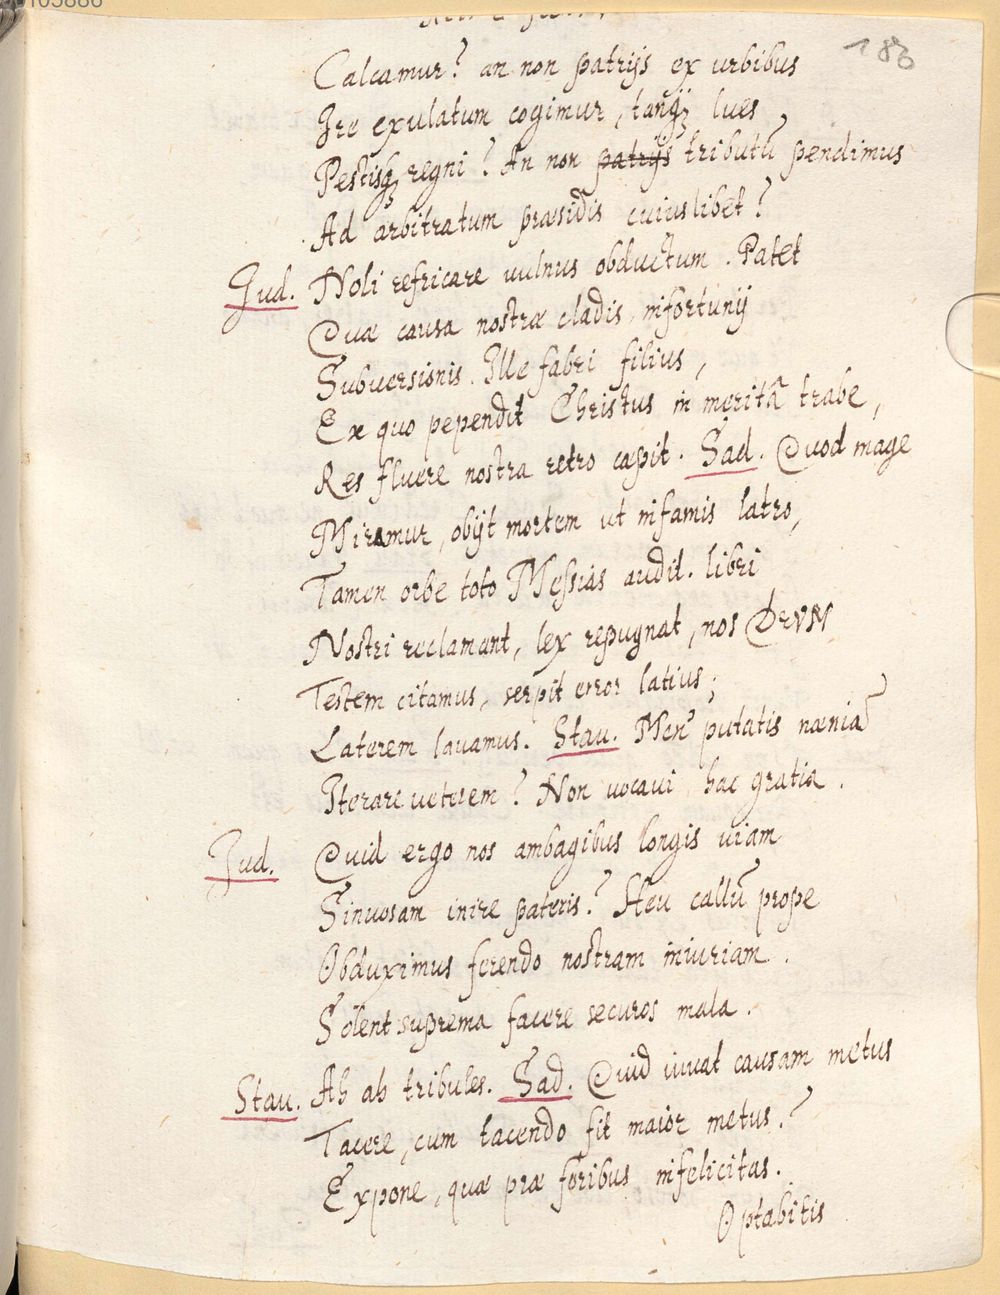 180
Calcamur? an non patrijs ex urbibus
Ire exulatum cogimur, tanqȝ lues
Pestisqȝ regni? An non patrijs tributū pendimus
Ad arbitratum præsidis cuiuslibet?
Jud. Noli refricare vulnus obductum. Patet
Quæ causa nostræ cladis, infortunij
Subversionis. Ille fabri filius,
Ex quo pependit Christus in meritâ trabe,
Res fluere nostra retro cæpit. Sad. Quod mage
Miramur, obijt mortem ut infamis latro,
Tamen orbe toto Messias audit. libri
Nostri reclamant, lex repugnat, nos DEVM
Testem citamus, serpit error latius;
Laterem lavamus. Stau. Men' putatis næniā
Iterare veterem? Non vocavi hac gratia.
Jud. Quid ergo nos ambagibus longis viam
Sinuosam inire pateris? Heu callū prope
Obduximus ferendo nostram iniuriam.
Solent suprema facere securos mala.
Stau. Ah ah tribules. Sad. Quid iuvat causam metus
Tacere, cum tacendo fit maior metus?
Expone, quæ præ foribus infelicitas.
Optabitis